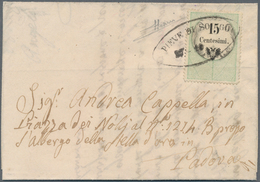 PIEVE DI SOLIGO
15
Centesimi
Sig.r Andrea Cappella in
Piazza dei Noli al N.° 3214 B presso
l'albergo della Stella d'oro in
Padova